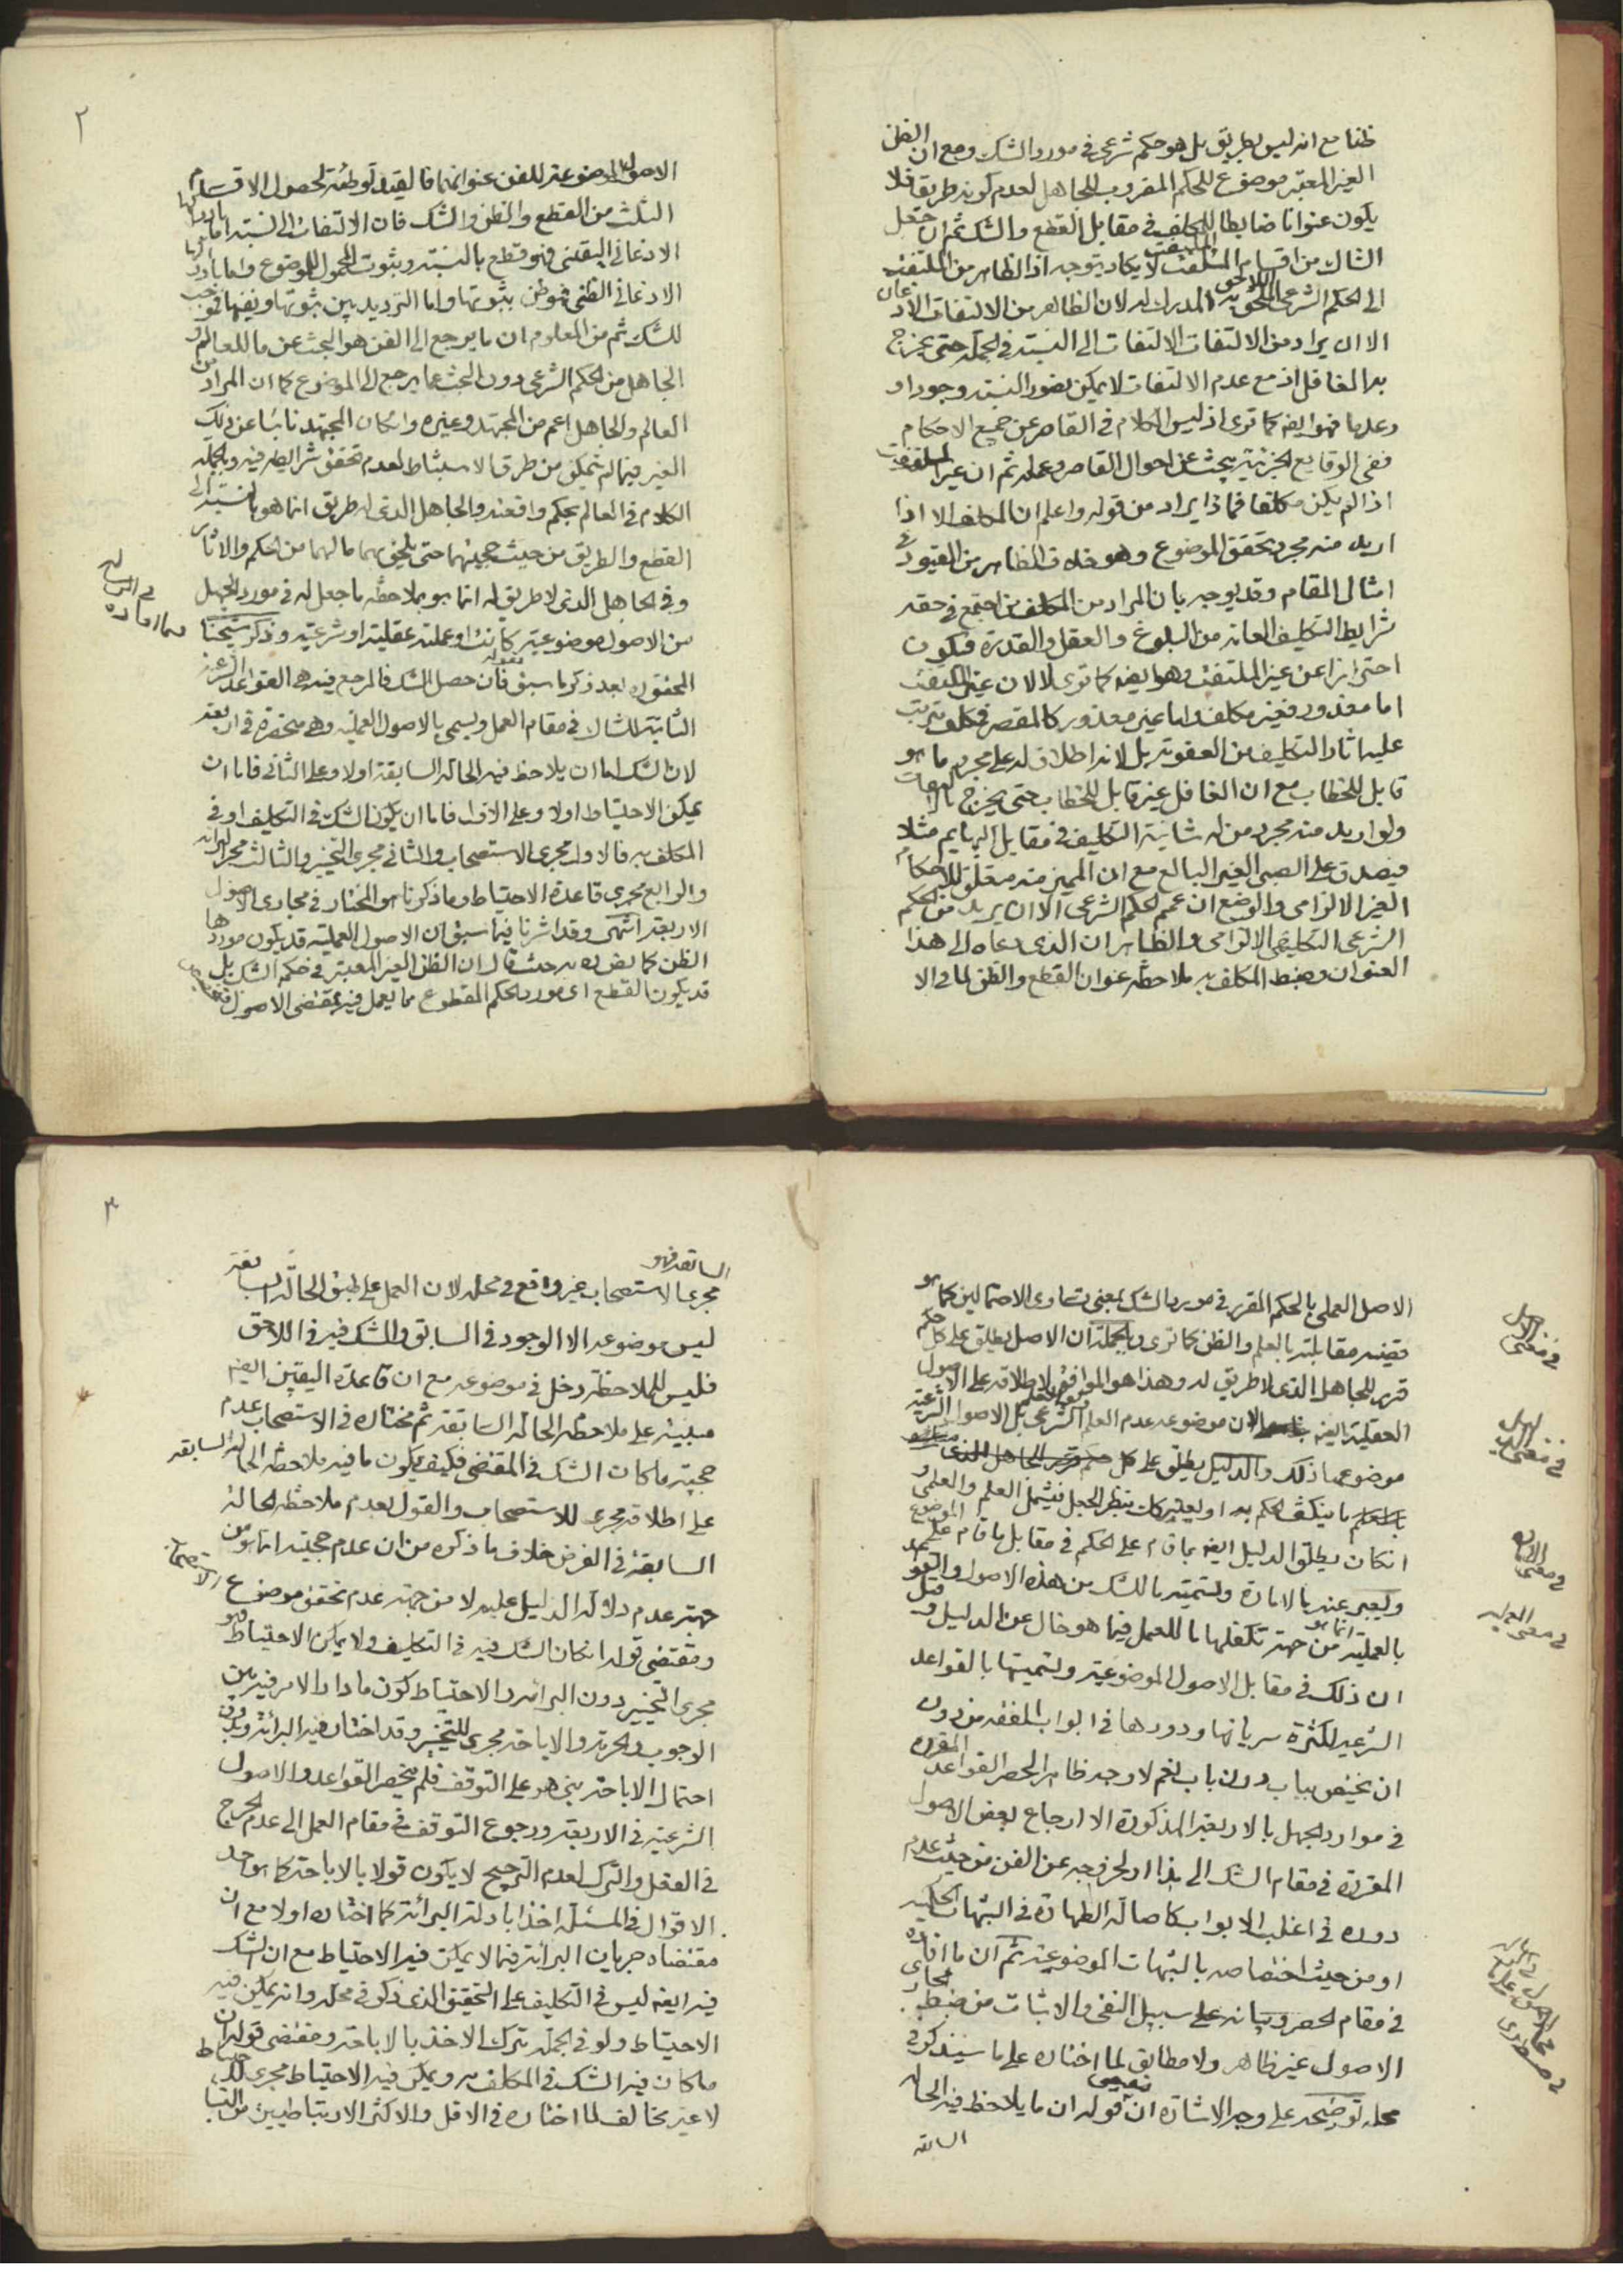 ظنا مع انه ليس بطريق بل هو حكم شرعي في مورد الشك ومع ان الظن
الغير المعتبر موضوع للحكم المضروب للجاهل لعدم كونه طريقا فلا
يكون عنوانا ضابطا للمكلف في مقابل القطع والشك ثم ان جعل
الشاك من اقسام الملتفت لا يكاد يتوجه اذ الظاهر من الملتفت
الى الحكم الشرعي المدرك له لان الظاهر من الالتفات
الا ان يراد من الالتفات الالتفات الى النسبة في الجملة حتى يخرج
به الغافل اذ مع عدم الالتفات لا يمكن تصور النسبة وجودا و
وعدما فهو ايضه كما ترى اذ ليس الكلام في القاصر عن جميع الاحكام
ففي الوقايع الجزئية يبحث عن احوال القاصر وعمله ثم ان غير الملتفت
اذا لم يكن مكلفا فماذا يراد من قوله واعلم ان المكلف الا اذا
اريد منه مجرد تحقق الموضوع وهو خلاف الظاهر من القيود في
امثال المقام وقد يوجه بان المراد من المكلف من اجتمع في حقه
شرايط التكليف العامة من البلوغ والعقل والقدرة فيكون
احترازا عن غير الملتفت وهو ايضه كما ترى لا لان غير الملتفت
اما معذور فغير مكلف واما غير معذور كالمقصر فمكلف يترتب
عليه اثار التكليف من العقوبة بل لانه اطلاق له على مجرد ما هو
قابل للخطاب مع ان الغافل غير قابل للخطاب حتى يخرج
ولو اريد منه مجرد من له شانية التكليف في مقابل البهايم مثلا
فيصدق على الصبي الغير البالغ مع ان المميز منه متعلق للاحكام
الغير الالزامي والوضع ان عمم الحكم الشرعي الا ان يريد من الحكم
الشرعي التكليفي الالزامي والظاهر ان الذي دعاه الى هذا
العنوان وضبط المكلف به ملاحظة عنوان القطع والظن لما في الا
٢
الاصول الموضوعة للفن عنوانهما فالقيد توطئة لحصول الاقسام
الثلث من القطع والظن والشك فان الالتفات الى النسبة اما
الاذعاني اليقيني فهو قطع بالنسبة وبثوت المحمول للموضوع واما
الاذعاني الظني فهو ظن بثبوتها واما الترديد بين ثبوتها ونفيها فموجب
للشك ثم من المعلوم ان ما يرجع الى الفن هو البحث عن ما للعالم و
الجاهل من الحكم الشرعي دون البحث عما يرجع الى الموضوع كما ان المراد من
العالم والجاهل اعم من المجتهد وغيره وان كان المجتهد نائبا عن ذلك
الغير فيما لم يتمكن من طرق الاستنباط لعدم تحقق شرايطه فيه وبالجملة
الكلام في العالم بحكم واقعته والجاهل الذي له طريق انما هو بالنسبة الى
القطع والطريق من حيث حجيتهما حتى يلحق بهما ما لهما من الحكم والاثار
وفي الجاهل الذي لا طريق له انما هو بملاحظة ما جعل له في مورد الجهل
من الاصول موضوعية كانت او عملية عقلية او شرعية وذكر شيخنا
المحقق ره بعد ذكر ما سبق بقوله فان حصل الشك فالمرجع فيه هي القواعد الشرعية
الثابتة للشاك في مقام العمل ويسمى بالاصول العملية وهي منحصرة في اربعة
لان الشك اما ان يلاحظ فيه الحالة السابقة اولا وعلى الثاني فاما ان
يمكن الاحتياط اولا وعلى الاول فاما ان يكون الشك في التكليف او في
المكلف به فالاول مجرى الاستصحاب والثاني مجرى التخيير والثالث مجرى البرائة
والرابع مجرى قاعدة الاحتياط وما ذكرنا هو المختار في مجارى الاصول
الاربعة انتهى وقد اشرنا فيما سبق ان الاصول العملية قد يكون موردها
الظن كما نص ره به حيث قال ان الظن الغير المعتبر في حكم الشك بل
قد يكون القطع اى مورد الحكم المقطوع مما يعمل فيه بمقتضى الاصول
في معنى الاصل
الاصل العملي بالحكم المقرر في مورد الشك بمعنى تساوى الاحتمالين كما هو
قضية مقابلته بالعلم والظن كما ترى وبالجملة ان الاصل يطلق على كل حكم
قرر للجاهل الذي لا طريق له وهذا هو الموافق لاطلاقه على الاصول
العقلية ايضه لان موضوعه عدم العلم الشرعي بل الاصول الشرعية
موضوعها ذلك والدليل يطلق على كل
ما ينكشف الحكم به او يعتبر كاشفا بنظر الجعل فيشمل العلم والعلمي و
ان كان يطلق الدليل ايضه بما قام على الحكم في مقابل ما قام على الموضوع
ويعبر عنه بالامارة وتسميته بالشك من هذه الاصول
بالعملية انما هو من جهة تكفلها بما للعمل فيما هو خال عن الدليل و قيل
ان ذلك في مقابل الاصول الموضوعية وتسميتها بالقواعد
الشرعية لكثرة سريانها ودورها في ابواب الفقه من دون
ان يختص بباب دون باب نعم لا وجه ظاهر لحصر القواعد المقررة
في موارد الجهل بالاربعة المذكورة الا ارجاع بعض الاصول
المقررة في مقام الشك الى هذا او لخروجه عن الفن من حيث عدم
دوره في اغلب الابواب كاصالة الطهارة في الشبهات الحكمية
او من حيث اختصاصه بالشبهات الموضوعية ثم ان ما افاده
في مقام الحصر وبيانه على سبيل النفي والاثبات من ضبط مجارى
الاصول غير ظاهر ولا مطابق لما اختاره على ما سيذكر في
محله توضيحه على وجه الاشارة ان قوله ان ما يلاحظ فيه الحالة
السابقة
٣
السابقة فهو
مجرى الاستصحاب غير واقع في محله لان العمل على طبق الحالة السابقة
ليس موضوعه الا الوجود في السابق والشك فيه في اللاحق
فليس للملاحظة دخل في موضوعه مع ان قاعدة اليقين ايضه
مبنية على ملاحظة الحالة السابقة ثم مختاره في الاستصحاب عدم
حجيته ما كان الشك في المقتضى فكيف يكون ما فيه ملاحظة الحالة السابقة
على اطلاقه مجرى للاستصحاب والقول بعدم ملاحظة الحالة
السابقة في الفرض خلاف ما ذكره من ان عدم حجيته انما هو من
جهة عدم دلالة الدليل عليه لا من جهة عدم تحقق موضوع الاستصحاب
ومقتضى قوله ان كان الشك فيه في التكليف ولا يمكن الاحتياط فهو
مجرى التخيير دون البرائة والاحتياط كون ما دار الامر فيه بين
الوجوب والحرمة والاباحة مجرى للتخيير وقد اختار فيه البرائة وبدون
احتمال الاباحة بنى هو على التوقف فلم ينحصر القواعد والاصول
الشرعية في الاربعة ورجوع التوقف في مقام العمل الى عدم الحرج
في الفعل والترك لعدم الترجيح لا يكون قولا بالاباحة كما هو احد
الاقوال في المسئلة اخذا بادلة البرائة كما اختاره اولا مع ان
مقتضاه جريان البرائة فيما لا يمكن فيه الاحتياط مع ان الشك
فيه ايضه ليس في التكليف على التحقيق الذي ذكر في محله وانه يمكن فيه
الاحتياط ولو في الجملة بترك الاخذ بالاباحة ومقتضى قوله ان
ما كان فيه الشك في المكلف به ويمكن فيه الاحتياط مجرى للاحتياط
لا غير مخالف لما اختاره في الاقل والاكثر الارتباطيين من